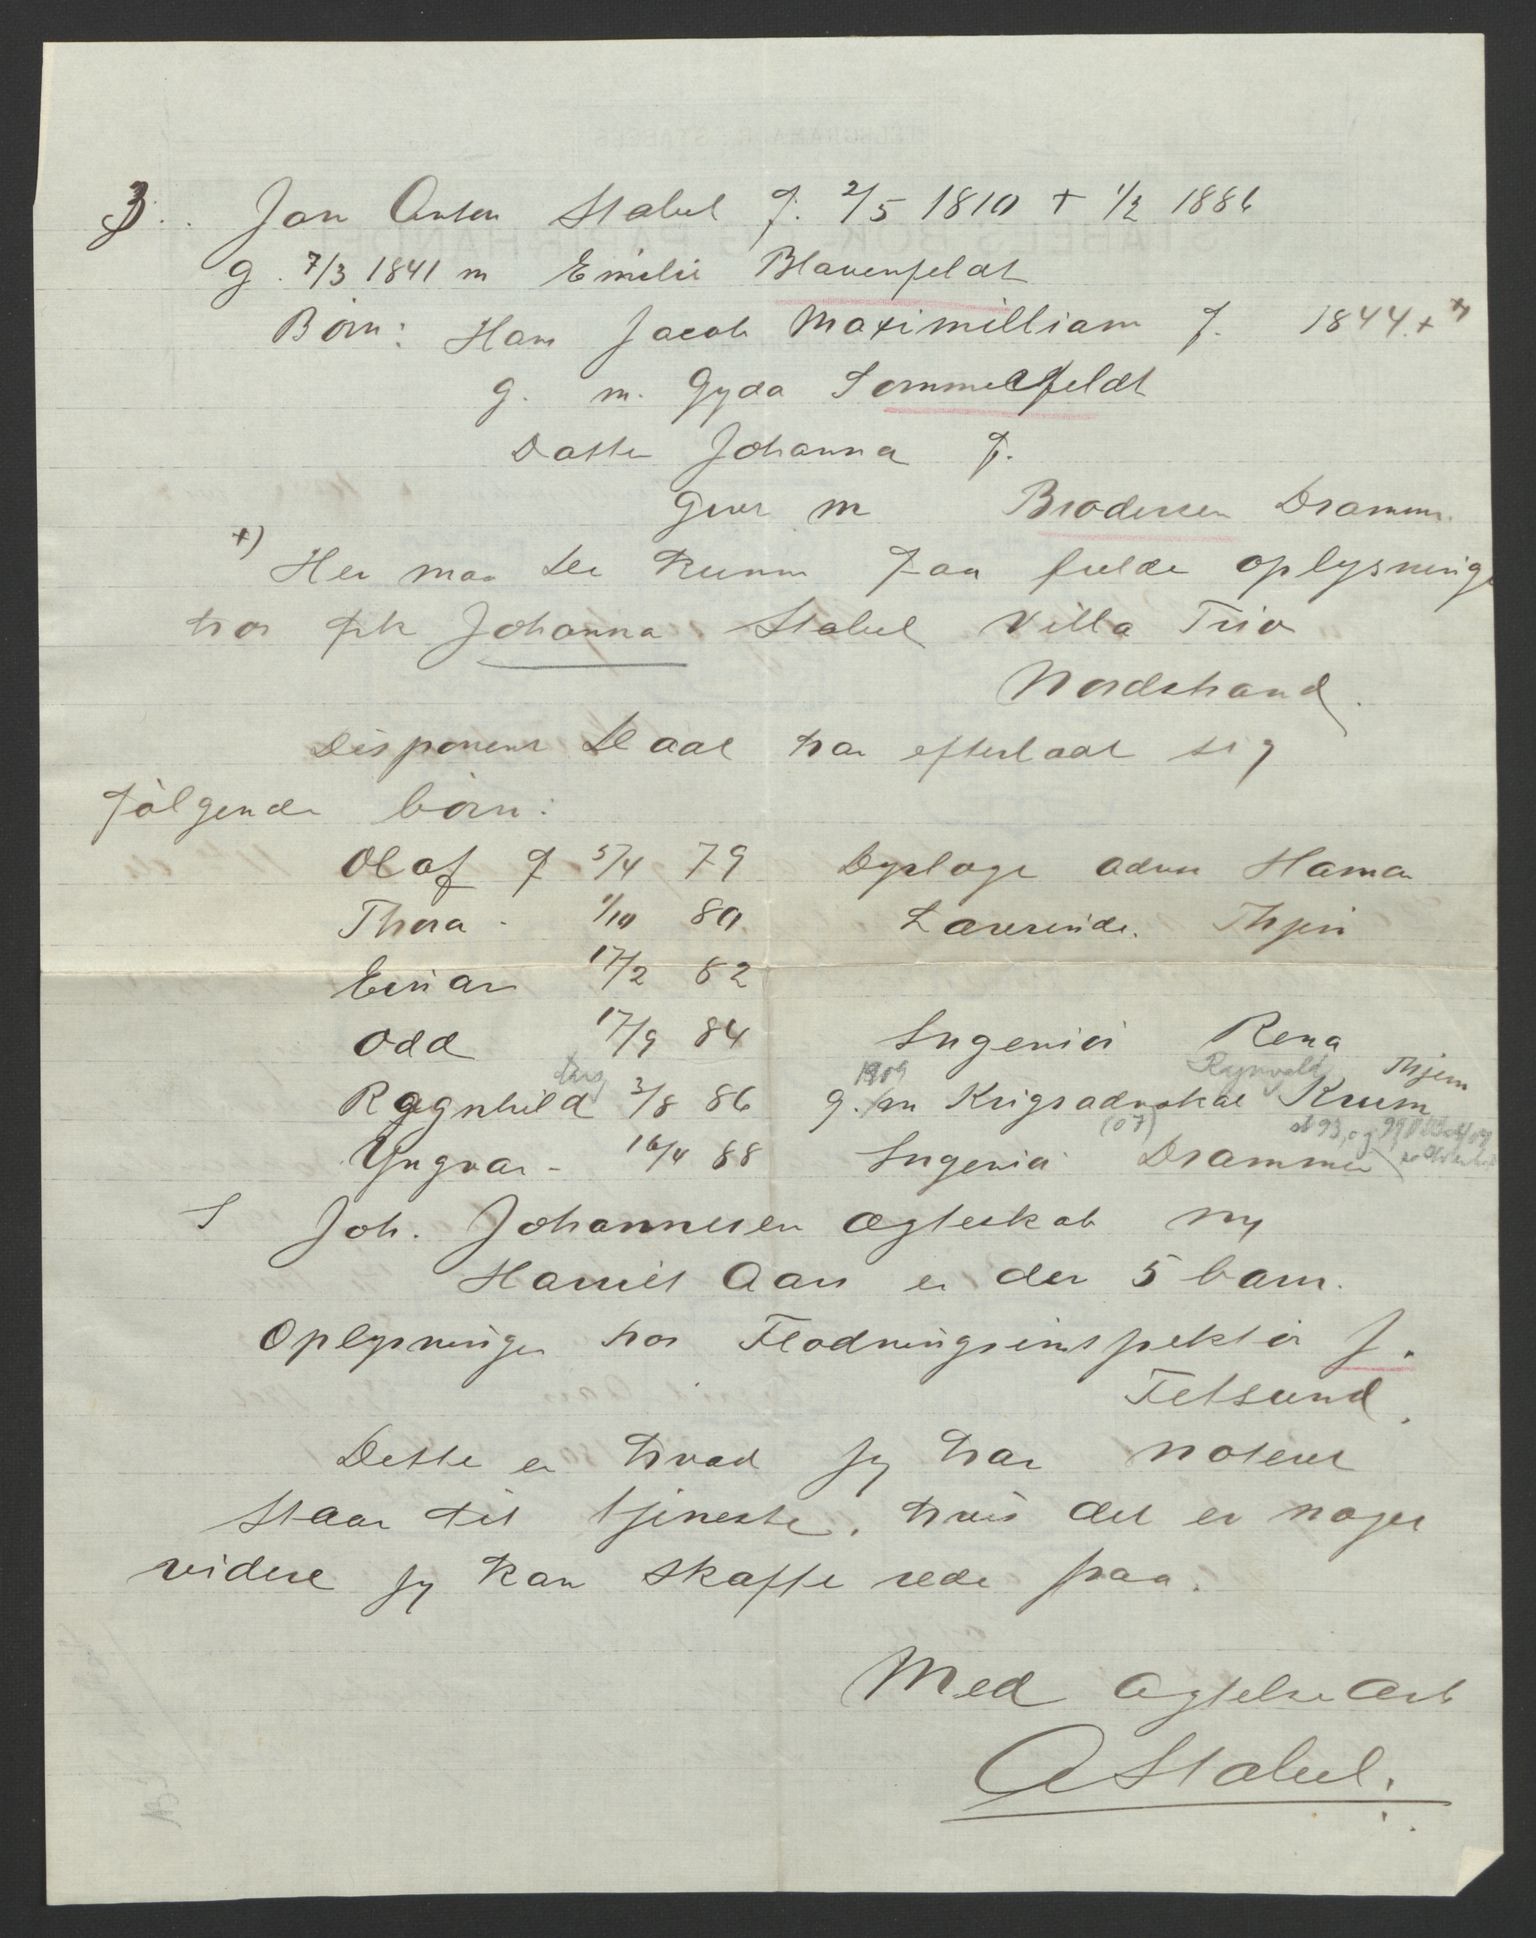 3. Jan Anton Stabel f. 2/5 1810 + 1/2 1886
g. 7/3 1841 m Emilie Blauenfeldt
Børn: Hans Jacob Maximilliam f. 1844. +
g. m. Gyda Sommerfeldt
Datter Johanna f.
Givt m Brodersen Drammen.
+) Her maa De kunne faa fulde oplysninger
hos frk Johanna Stabel Villa Trio
Nordstrand.
Disponent Staal har efterladt sig
følgende børn:
Olaf f 5/4 79 Dyrlæge adres Hamar
Thora - 1/10 80. Lærerinde. Thjem
Einar 17/2 82
Odd 17/9 84 Ingeniør Rena
1909 Rynvald Thjem
Ragnhild 3/8 86 g. m Krigsadvokat Krum
(07)
Yngvar - 16/4 88 Ingeniør Drammen
I Joh. Johannesen ægteskab m
Harriet Aars er der 5 barn.
Oplysninger hos Flødningsinspektør J.
Fetsund.
Dette er hvad jeg har noteret
staar til tjeneste, hvis det er noget
videre jeg kan skaffe rede paa.
Med agtelse Ærb
A Stabel.